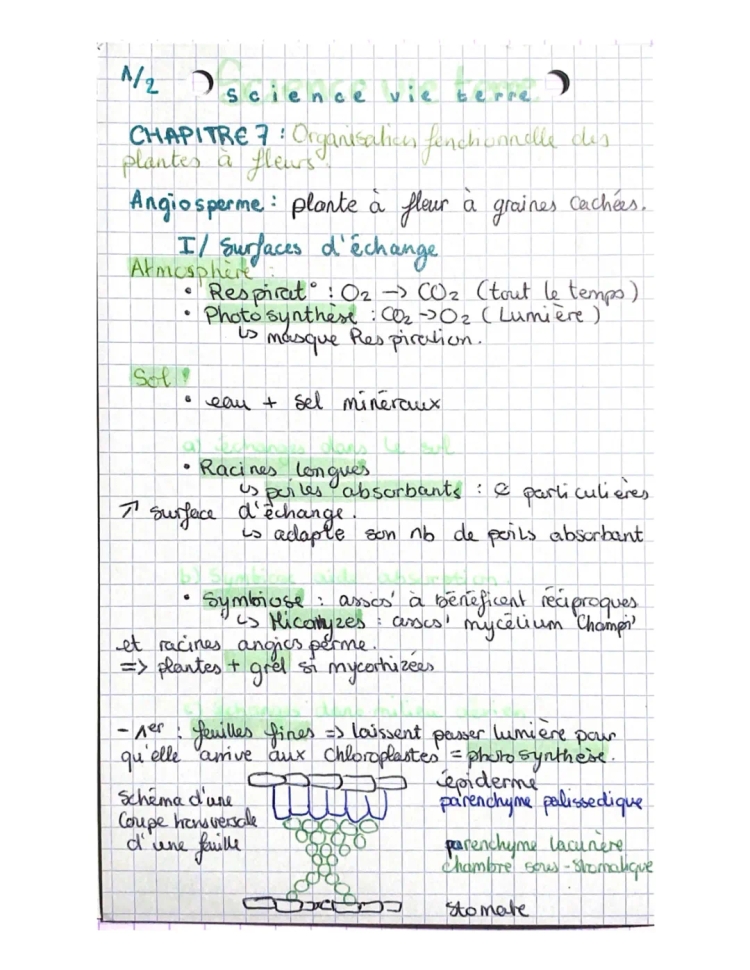 1/2
Science vie terre
science vie terre
CHAPITRE 7 : Organisation fonctionnelle des
plantes à fleurs
Angiosperme : plante à fleur à graines cachées.
I/ Surfaces d'échange
Atmosphère :
• Respirat° : O2 → CO2 (tout le temps)
• Photosynthèse : CO2 → O2 (Lumière)
↳ masque Respiration.
Sol :
• eau + sel minéraux
a) échanges dans le sol
• Racines longues
↳ poiles absorbants : ¢ particulières
↗ surface d'échange.
↳ adapte son nb de poils absorbant
b) Symbiose aide absorption.
• Symbiose : assos' à bénéficent réciproques
↳ Micorhyzes : assos' mycélium Champi'
et racines angiosperme.
=> plantes + grd si mycorhizées
c) échanges dans milieu aérien
- 1er : feuilles fines => laissent passer lumière pour
qu'elle arrive aux chloroplastes = photosynthèse.
épiderme
Schéma d'une parenchyme palissedique
Coupe transversale
d'une feuille parenchyme lacunère
chambre sous-stomatique
stomate